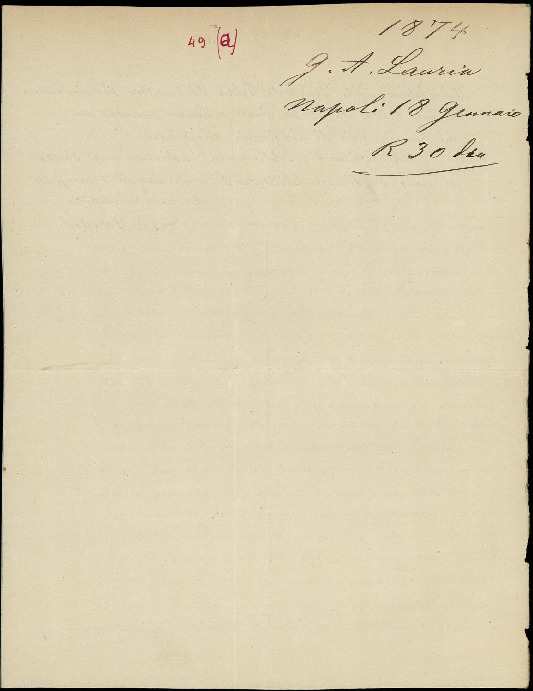 49 (a)
1874
G. A. Lauria
Napoli 18 Gennaio
R 30 do